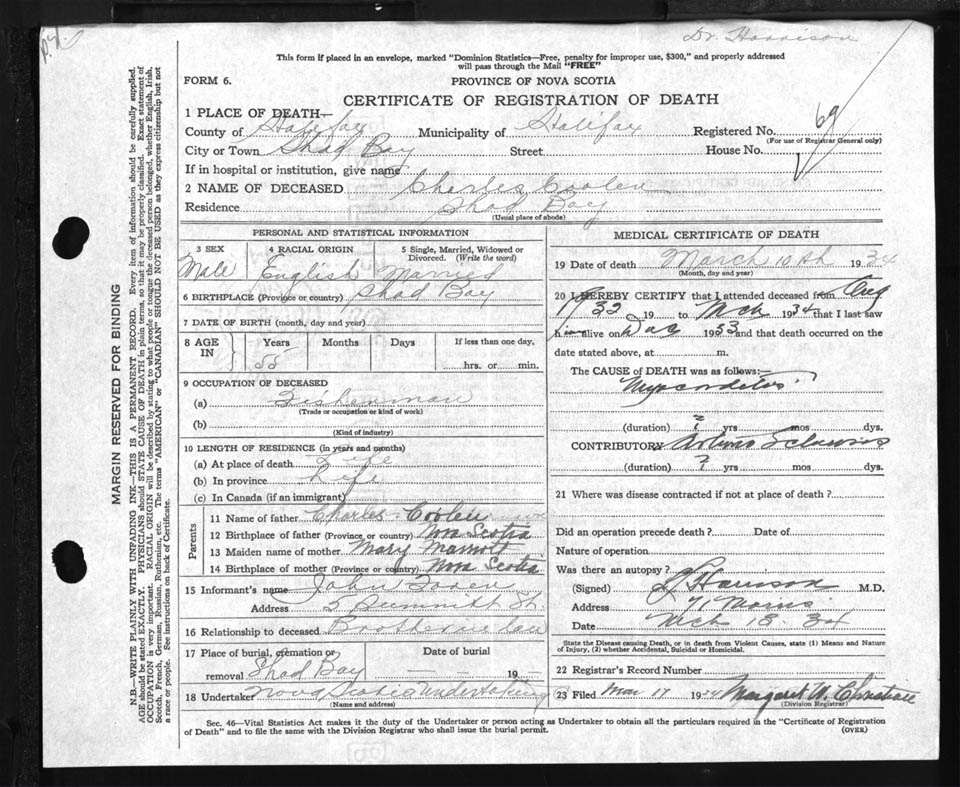 Dr. Harrison
This form if placed in an envelope, marked "Dominion Statistics—Free, penalty for improper use, $300," and properly addressed
will pass through the Mail "FREE"
FORM 6. PROVINCE OF NOVA SCOTIA
CERTIFICATE OF REGISTRATION OF DEATH
1 PLACE OF DEATH—
County of Halifax Municipality of Halifax Registered No. 69
(For use of Registrar General only)
City or Town Shad Bay Street House No.
If in hospital or institution, give name
2 NAME OF DECEASED Charles Coolen
Residence Shad Bay
(Usual place of abode)
MARGIN RESERVED FOR BINDING
N.B.—WRITE PLAINLY WITH UNFADING INK—THIS IS A PERMANENT RECORD. Every item of information should be carefully supplied.
AGE should be stated EXACTLY. PHYSICIANS should STATE CAUSE OF DEATH in plain terms, so that it may be properly classified. Exact statement of
OCCUPATION is very important. RACIAL ORIGIN will be described by stating to what people or tongue the deceased person belonged, whether English, Irish,
Scotch, French, German, Russian, Ruthenian, etc. The terms "AMERICAN" or "CANADIAN" SHOULD NOT BE USED as they express citizenship but not
a race or people. See instructions on back of Certificate.
PERSONAL AND STATISTICAL INFORMATION
3 SEX 4 RACIAL ORIGIN 5 Single, Married, Widowed or
Divorced. (Write the word)
Male English Married
6 BIRTHPLACE (Province or country) Shad Bay
7 DATE OF BIRTH (month, day and year)
8 AGE IN Years Months Days If less than one day,
55 hrs. or min.
9 OCCUPATION OF DECEASED
(a) Fisherman
(Trade or occupation or kind of work)
(b)
(Kind of industry)
10 LENGTH OF RESIDENCE (in years and months)
(a) At place of death Life
(b) In province Life
(c) In Canada (if an immigrant)
Parents
11 Name of father Charles Coolen
12 Birthplace of father (Province or country) Nova Scotia
13 Maiden name of mother Mary
14 Birthplace of mother (Province or country) Nova Scotia
15 Informant's name John
Address 5 St.
16 Relationship to deceased Brotherinlaw
17 Place of burial, cremation or Date of burial
removal Shad Bay 19
18 Undertaker Nova Scotia Undertaking
(Name and address)
MEDICAL CERTIFICATE OF DEATH
19 Date of death March 10th 1934
(Month, day and year)
20 I HEREBY CERTIFY that I attended deceased from Aug
32 19 to Mch 1934 that I last saw
h alive on 1933 and that death occurred on the
date stated above, at m.
The CAUSE of DEATH was as follows:—
(duration) ? yrs mos dys.
CONTRIBUTORY
(duration) ? yrs mos dys.
21 Where was disease contracted if not at place of death?
Did an operation precede death? Date of
Nature of operation
Was there an autopsy?
(Signed) Harrison M.D.
Address 71 Morris
Date Mch 13 34
State the Disease causing Death, or in death from Violent Causes, state (1) Means and Nature
of Injury, (2) whether Accidental, Suicidal or Homicidal.
22 Registrar's Record Number
23 Filed Mar 17 1934 Margaret W. Christian
(Division Registrar)
Sec. 46—Vital Statistics Act makes it the duty of the Undertaker or person acting as Undertaker to obtain all the particulars required in the "Certificate of Registration
of Death" and to file the same with the Division Registrar who shall issue the burial permit. (OVER)